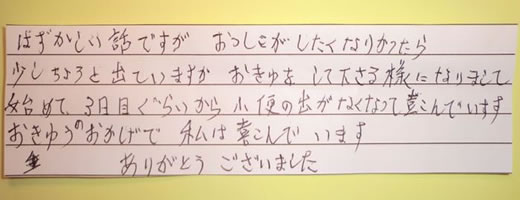 はずかしい話ですが おっしこがしたくなりかったら
少しちょろと出ていますが おきゅを して下さる様になりまして
始めて、3日目ぐらいから 小便の出がなくなって喜こんでいます
おきゅうのおかげで 私は喜こんで います
ありがとう ございました